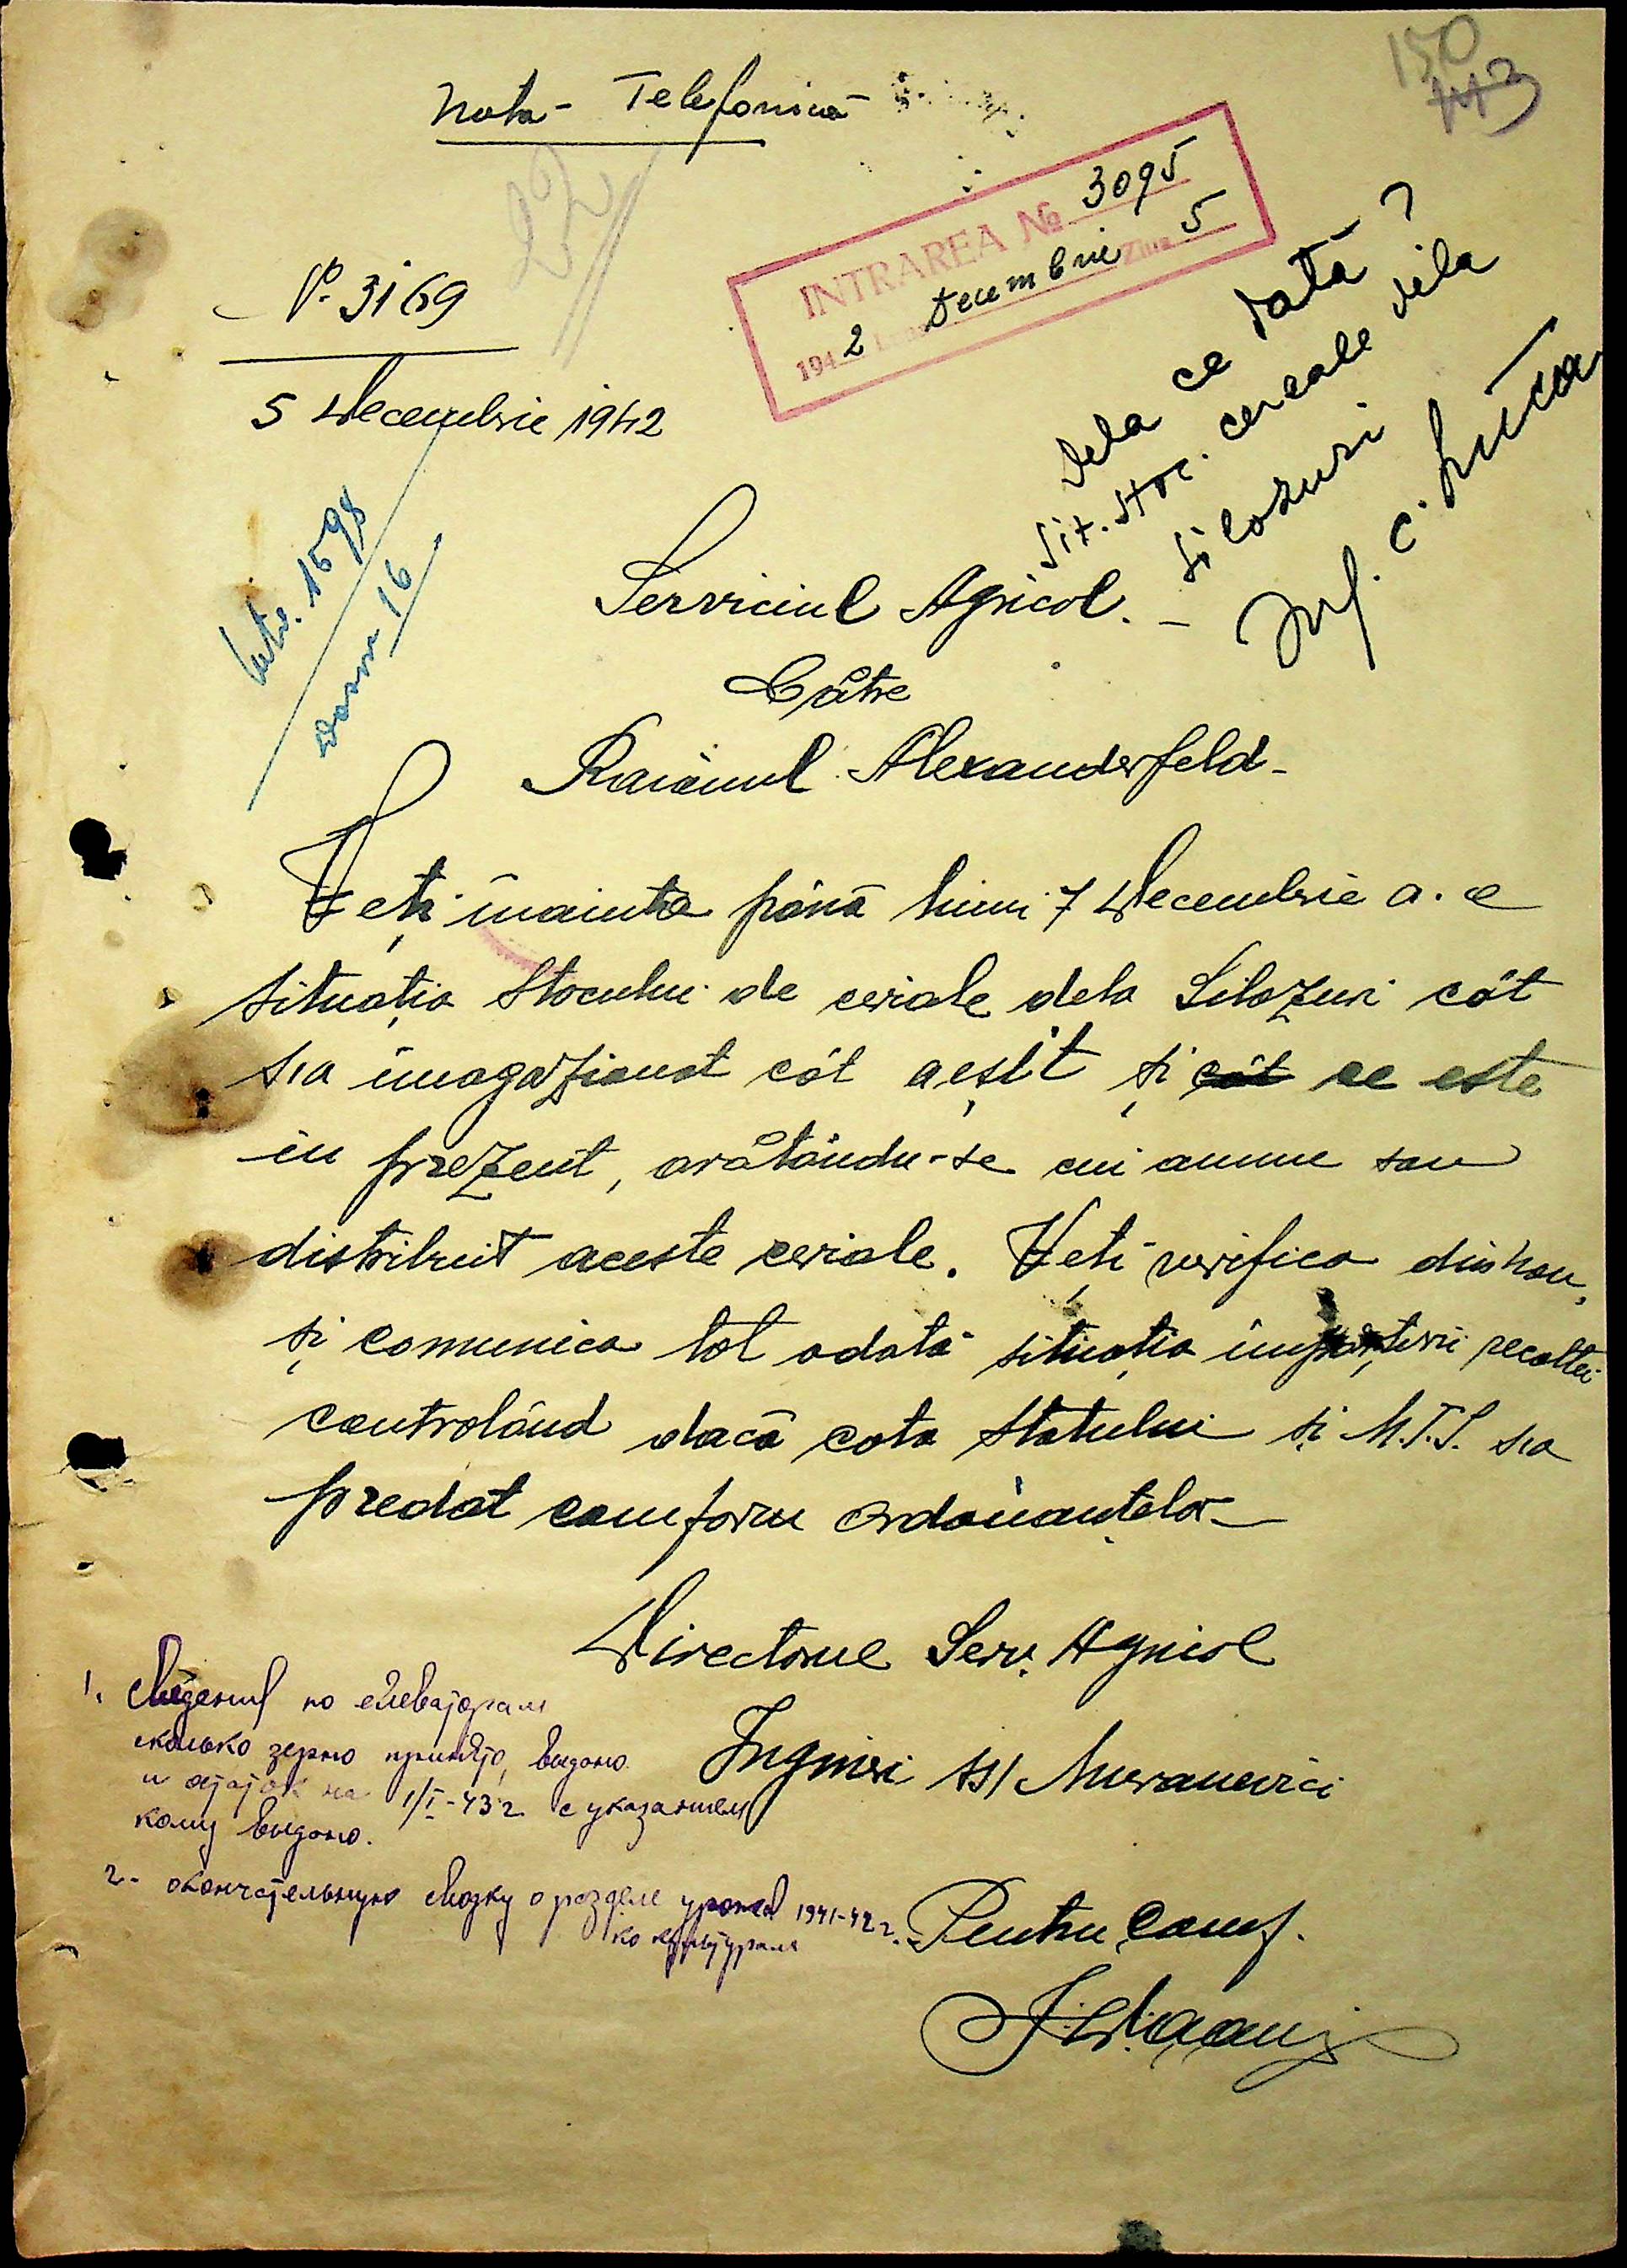 150
113
Nota - Telefonică
INTRAREA № 3095
1942 Luna Decembrie Ziua 5
№ 3169
5 Decembrie 1942
dela ce dată?
Sit. stoc. cereale dela
silozuri
1598
16
Serviciul Agricol. -
Către
Raionul Alexanderfeld -
Veți înainta până luni 7 Decembrie a. c
situația stocului de ceriale dela Silozuri cât
sa imagazionat cât a eșit și cât ce este
în prezent, arătându-se cui anume sau
distribuit aceste ceriale. Veți verifica din nou,
și comunica tot odată situația împărțirii recoltei
controlând dacă cota Statului și M.T.S. sa
predat conform Ordonanțelor -
Directorul Serv. Agricol
Inginer ss/
Pentru Conf.
1. Сведения по елеваторам
сколько зерно принято, выдано
и остаток на 1/I-43 г. с указанием
кому выдано.
2. окончательную сводку о разделе урожая 1941-42 г.
по культурам